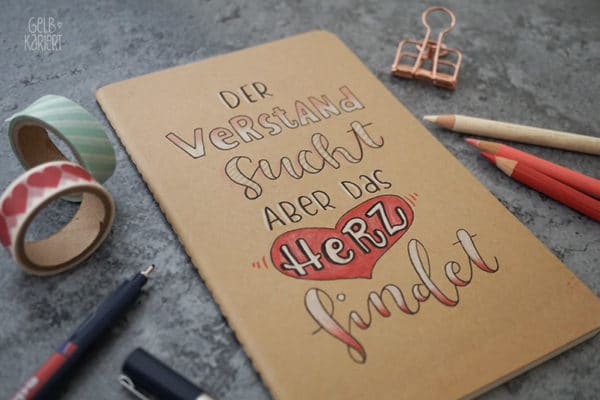 GELB
KARIERT
DER
VERSTAND
sucht
ABER DAS
HERZ
findet